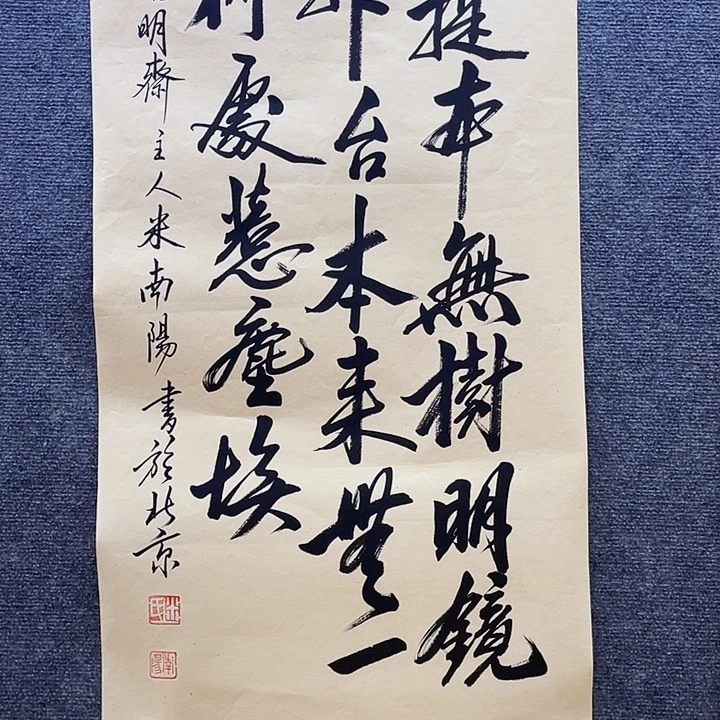 提本無樹明鏡
非台本来無一
何處惹塵埃
明齋主人米南陽書於北京
南陽